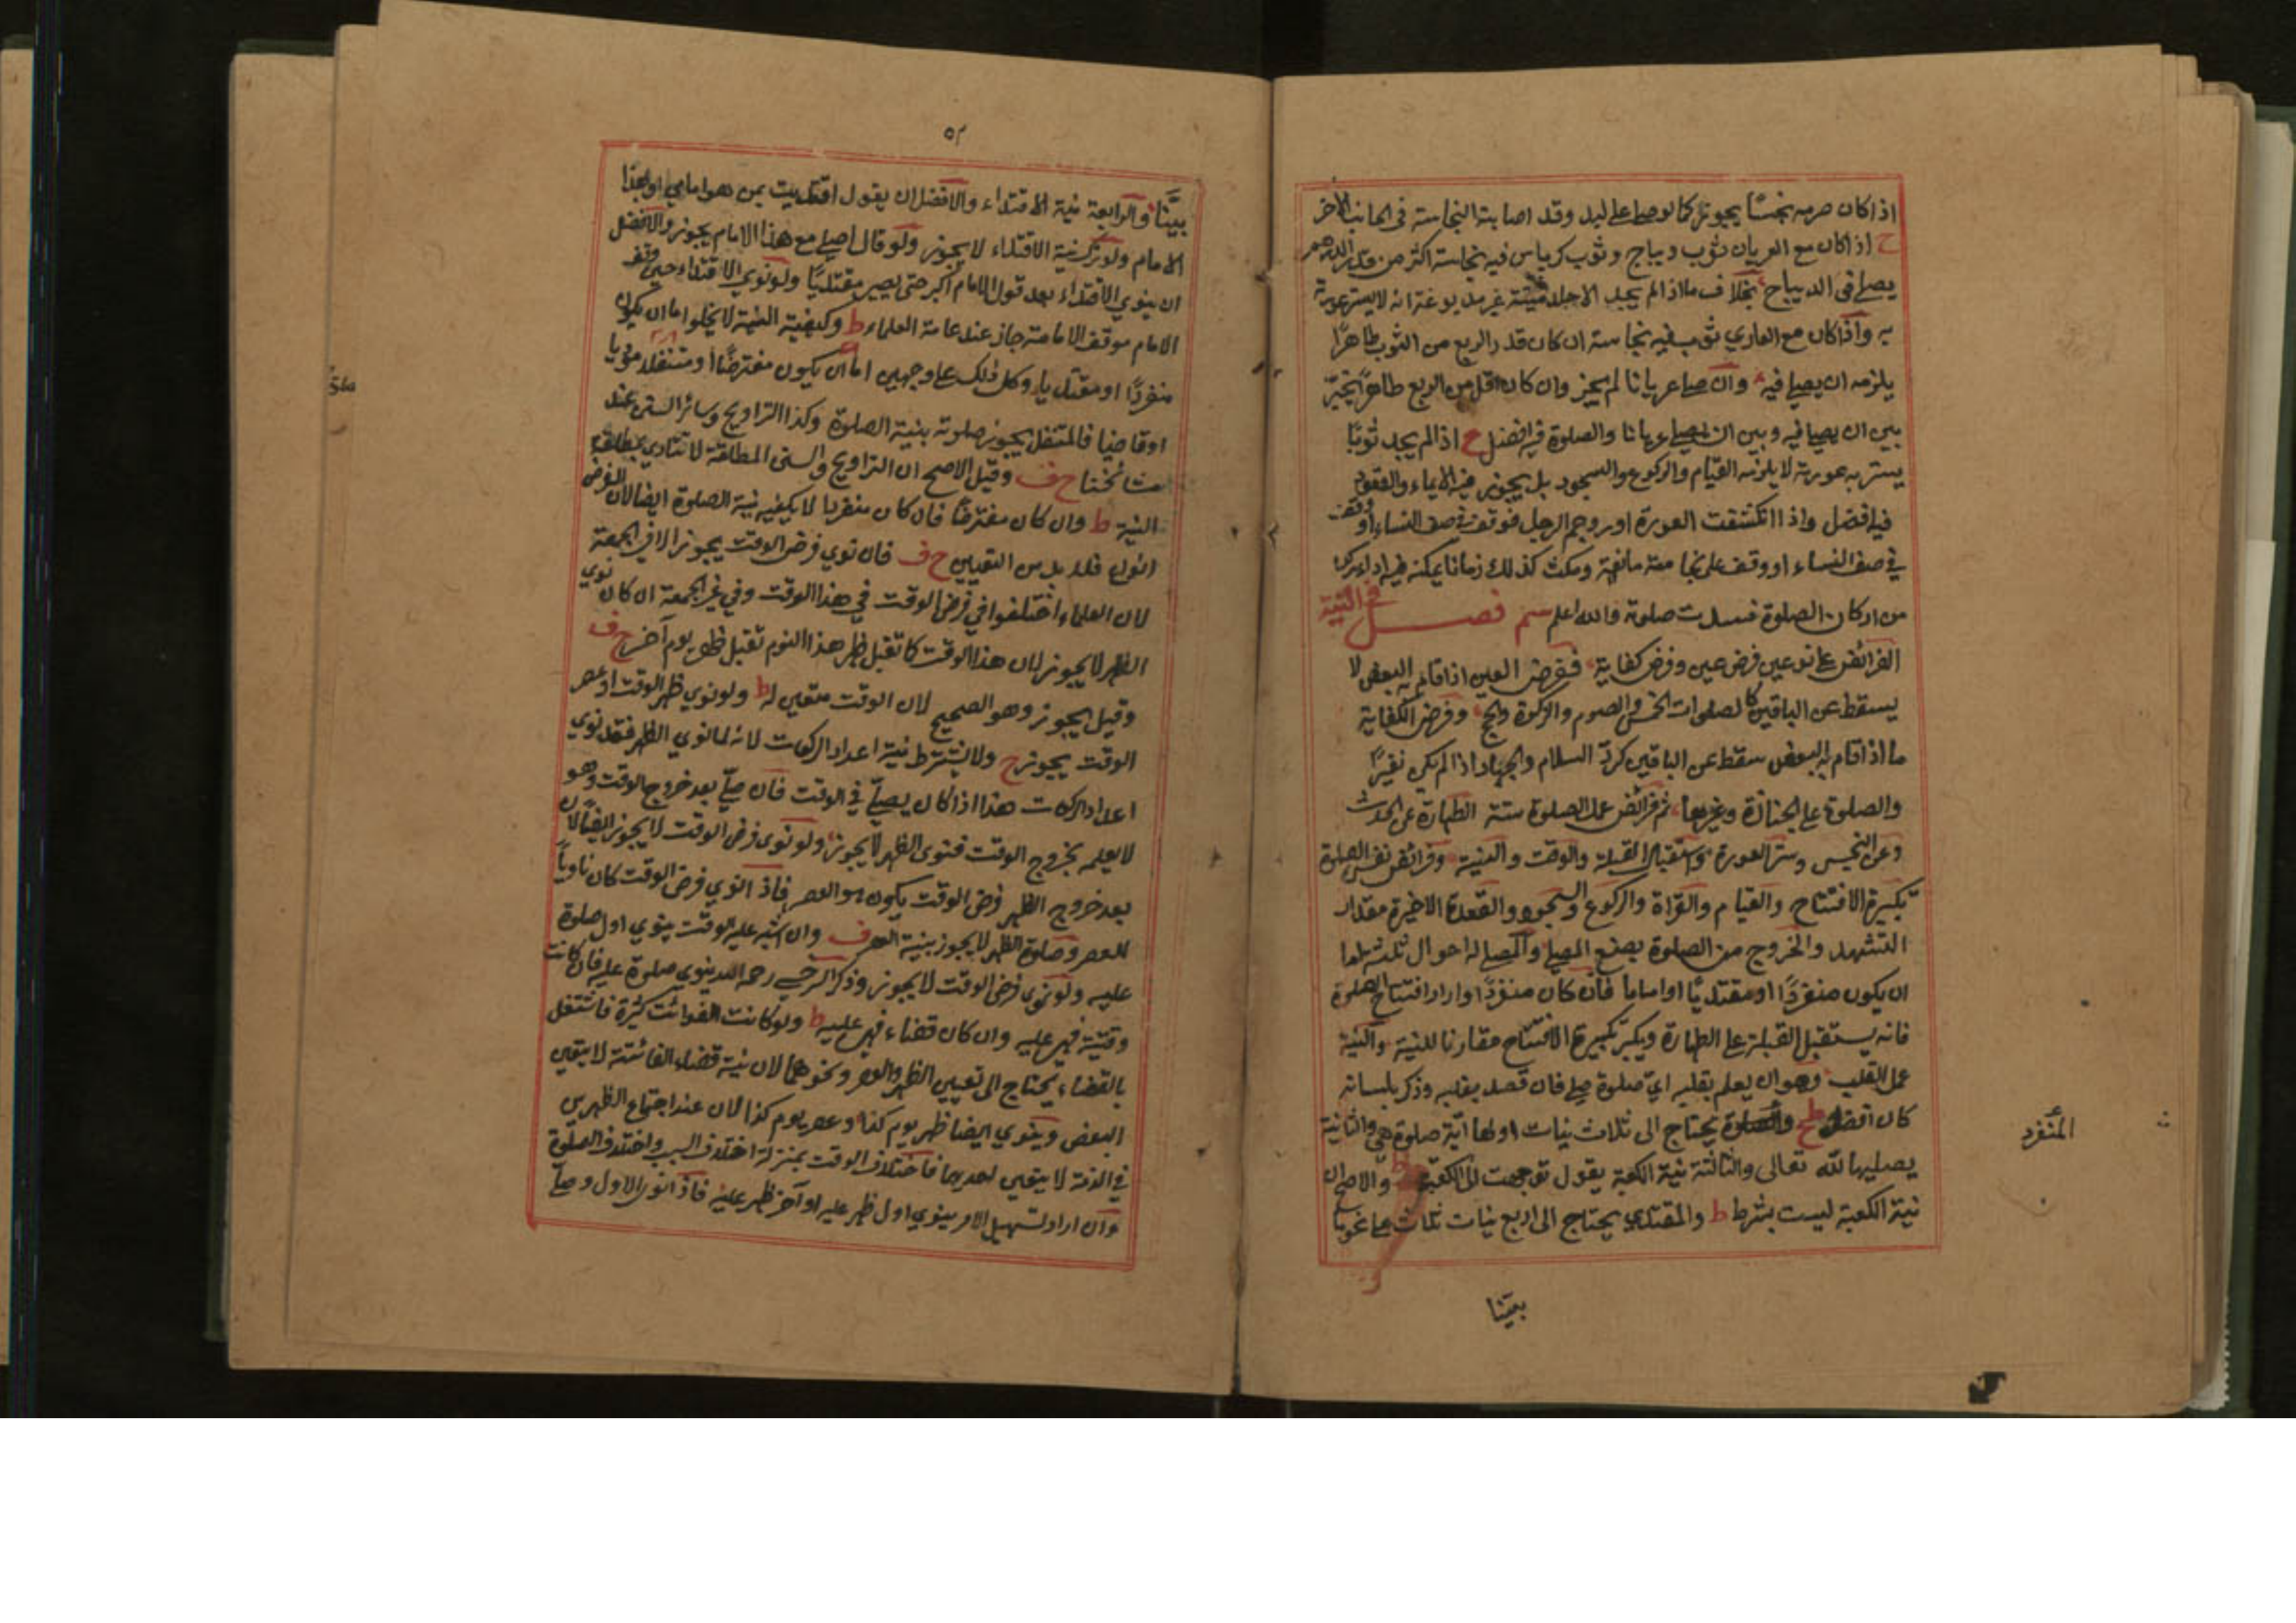 اذا كان صرمه نجسًا يجوز كما لو صلى على لبد وقد اصابة النجاسة فى الجانب الاخر
ح اذا كان مع العريان ثوب ديباج وثوب كرباس فيه نجاسة اكثر من قدر الدرهم
يصلى فى الديباج بخلاف ما اذا لم يجد الا جلد ميتة غير مدبوغة انه لا يستر عورته
به واذا كان مع العاري ثوب فيه نجاسة ان كان قدر الربع من الثوب طاهرًا
يلزمه ان يصلي فيه وان صلى عريانا لم يجز وان كان اقل من الربع طاهرًا يخيّر
بين ان يصلى فيه وبين ان يصلي عريانا والصلوة فيه افضل ح اذا لم يجد ثوبًا
يستر به عورته لا يلزمه القيام والركوع والسجود بل يجوز فيه الايماء والقعود
فيه افضل واذا انكشفت العورة او زوحم الرجل فوقع في صف النساء او وقف
في صف النساء او وقف على نجاسة مانعة ومكث كذلك زمانا يمكنه فيه اداء ركن
من اركان الصلوة فسدت صلوته والله اعلم سم فصل في النية
الفرائض على نوعين فرض عين وفرض كفاية ففرض العين اذا قام به البعض لا
يسقط عن الباقين كالصلوات الخمس والصوم والزكوة والحج وفرض الكفاية
ما اذا قام به البعض سقط عن الباقين كردّ السلام والجهاد اذا لم يكن نفيرًا
والصلوة على الجنازة وغيرها ثم فرائض عمل الصلوة ستة الطهارة عن الحدث
وعن النجس وستر العورة واستقبال القبلة والوقت والنية وفرائض نفس الصلوة
تكبيرة الافتتاح والقيام والقراة والركوع والسجود والقعدة الاخيرة مقدار
التشهد والخروج من الصلوة بصنع المصلي والمصلى له احوال ثلثة اما
ان يكون منفردًا او مقتديًا او اماما فان كان منفردًا اواراد افتتاح الصلوة
فانه يستقبل القبلة على الطهارة ويكبر تكبيرة الافتتاح مقارنا للنية والنية
عمل القلب وهو ان يعلم بقلبه ايّ صلوة هي فان قصد بقلبه وذكر بلسانه
كان افضل ط ح يحتاج الى ثلاث نيات اولها اية صلوة هي والثانية
يصليها لله تعالى والثالثة نية الكعبة يقول توجهت الى الكعبة ط والاصح ان
نية الكعبة ليست بشرط ط والمقتدي يحتاج الى اربع نيات ثلاث على نحو ما
المنفرد
بيّنا
بيّنا والرابعة نية الاقتداء والافضل ان يقول اقتديت بمن هو امامي او بهذا
الامام ولو ترك نية الاقتداء لا يجوز ولو قال اصلي مع هذا الامام يجوز والافضل
ان ينوي الاقتداء بعد قول الامام اكبر حتى يصير مقتديًا ولو نوي الاقتداء حين وقف
الامام موقف الامامة جاز عند عامة العلماء ط وكيفية النية لا يخلو اما ان يكون
منفردًا او مقتديا وكل ذلك على وجهين اما ان يكون مفترضًا او متنفلا مؤديا
او قاضيا فالمتنفل يجوز صلوته بنية الصلوة وكذا التراويح وسائر السنن عند
مشائخنا ح ف وقيل الاصح ان التراويح والسنن المطلقة لا تتادي بمطلق
النية ط وان كان مفترضًا فان كان منفردا لا يكفيه نية الصلوة ايضا لان الفرض
انواع فلا بد من التعيين ح ف فان نوي فرض الوقت يجوز الا في الجمعة
لان العلماء اختلفوا في فرض الوقت في هذا الوقت وفي غير الجمعة ان كان نوي
الظهر لا يجوز لان هذا الوقت كما تقبل ظهر هذا اليوم تقبل ظهر يوم آخر ح ف
وقيل يجوز وهو الصحيح لان الوقت متعين له ط ولو نوي ظهر الوقت او عصر
الوقت يجوز ح ولا يشترط نية اعداد الركعات لانه لما نوي الظهر فقد نوي
اعداد الركعات هذا اذا كان يصلّي في الوقت فان صلّي بعد خروج الوقت وهو
لا يعلم بخروج الوقت فنوى الظهر لا يجوز ولو نوى فرض الوقت لا يجوز ايضًا لان
بعد خروج الظهر فرض الوقت يكون هو العصر فاذا نوي فرض الوقت كان ناويًا
للعصر وصلوة الظهر لا يجوز بنية العصر ف وان اشتبه عليه الوقت ينوي اول صلوة
عليه ولو نوى فرض الوقت لا يجوز وذكر السرخسي رحمه الله ينوي صلوة عليه فان كانت
وقتية فهي عليه وان كان قضاء فهي عليه ط ولو كانت الفوائت كثيرة فاشتغل
بالقضاء يحتاج الى تعيين الظهر والعصر ونحوهما لان نية قضاء الفائتة لا يتعين
البعض وينوي ايضا ظهر يوم كذا وعصر يوم كذا لان عند اجتماع الظهرين
في الذمة لا يتعين احدهما فاختلاف الوقت بمنزلة اختلاف السبب واختلاف الصلوة
وان اراد تسهيل الامر ينوي اول ظهر عليه او آخر ظهر عليه فاذا نوى الاول وصلّي